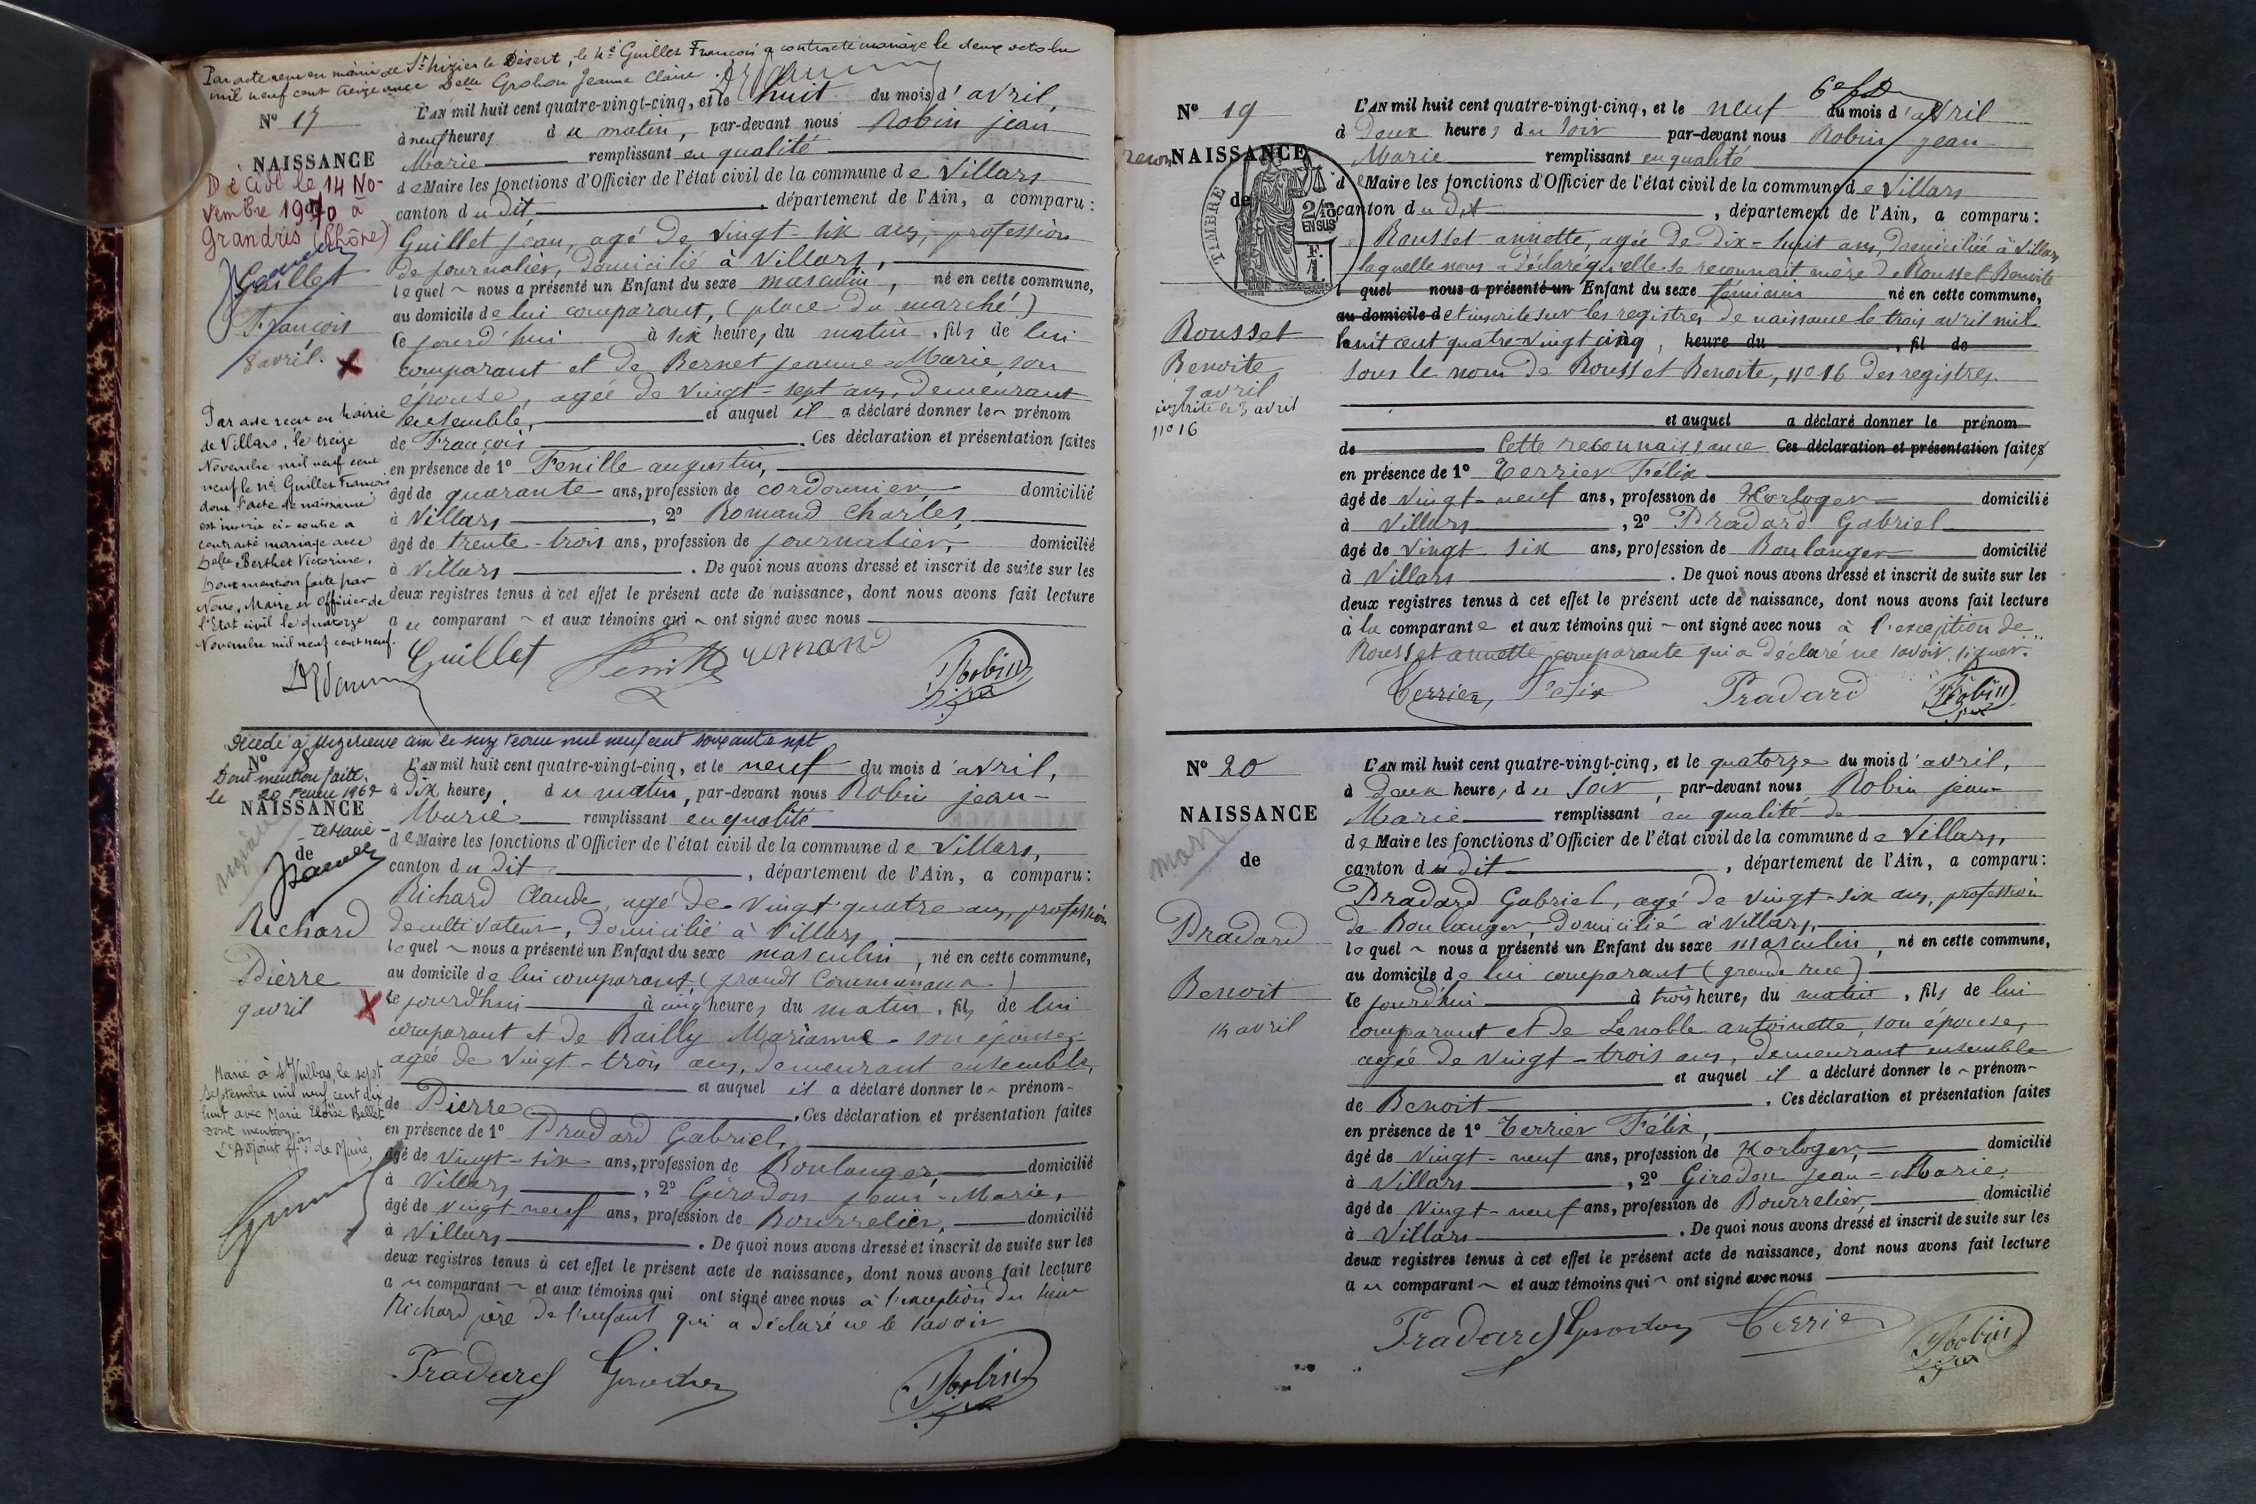 Par acte reçu en mairie de St Nizier le Désert, le né Guillet François a contracté mariage le deux octobre
mil neuf cent treize avec Delle Grohon Jeanne Claire.
N° 17
NAISSANCE
de
Décédé le 14 No-
vembre 1970 à
Grandris (Rhône)
Guillet
François
8 avril.
Par acte reçu en mairie
de Villars, le treize
Novembre mil neuf cent
neuf le né Guillet François
dont l'acte de naissance
est inscrit ci-contre a
contracté mariage avec
Delle Berthet Victorine.
Dont mention faite par
Nous, Maire et Officier de
l'Etat civil le quatorze
Novembre mil neuf cent neuf.
L'AN mil huit cent quatre-vingt-cinq, et le huit du mois d'avril,
à neuf heures du matin, par-devant nous Robin Jean
Marie remplissant en qualité
de Maire les fonctions d'Officier de l'état civil de la commune de Villars
canton du dit, département de l'Ain, a comparu :
Guillet Jean, agé de vingt-six ans, profession
de journalier, domicilié à Villars,
lequel nous a présenté un Enfant du sexe masculin, né en cette commune,
au domicile de lui comparant, (place du marché)
ce jourd'hui à six heures du matin, fils de lui
comparant et de Bernet Jeanne Marie, son
épouse, agée de vingt-sept ans, demeurant
ensemble, et auquel il a déclaré donner le prénom
de François. Ces déclaration et présentation faites
en présence de 1° Fenille augustin,
âgé de quarante ans, profession de cordonnier, domicilié
à Villars, 2° Romand Charles,
âgé de trente-trois ans, profession de journalier, domicilié
à Villars. De quoi nous avons dressé et inscrit de suite sur les
deux registres tenus à cet effet le présent acte de naissance, dont nous avons fait lecture
au comparant et aux témoins qui ont signé avec nous
Guillet Fenille romand Robin
Décédé à Mézérieux ain le seize février mil neuf cent soixante sept
N° 18
Dont mention faite,
le 20 février 1967
NAISSANCE
le Maire
de
Richard
Pierre
9 avril
Marié à St Vulbas, le sept
septembre mil neuf cent dix
huit avec Marie Eloïse Bellet
Dont mention.
L'Adjoint ff ons de Maire,
L'AN mil huit cent quatre-vingt-cinq, et le neuf du mois d'avril,
à dix heures du matin, par-devant nous Robin Jean-
Marie remplissant en qualité
de Maire les fonctions d'Officier de l'état civil de la commune de Villars,
canton du dit, département de l'Ain, a comparu :
Richard Claude, agé de vingt quatre ans, profession
de cultivateur, domicilié à Villars
lequel nous a présenté un Enfant du sexe masculin, né en cette commune,
au domicile de lui comparant, (grands Communaux)
ce jourd'hui à cinq heures du matin, fils de lui
comparant et de Bailly Marianne son épouse,
agée de vingt-trois ans, demeurant ensemble,
et auquel il a déclaré donner le prénom
de Pierre. Ces déclaration et présentation faites
en présence de 1° Pradard Gabriel,
âgé de vingt-six ans, profession de Boulanger, domicilié
à Villars, 2° Girodon Jean-Marie,
âgé de vingt neuf ans, profession de Bourrelier, domicilié
à Villars. De quoi nous avons dressé et inscrit de suite sur les
deux registres tenus à cet effet le présent acte de naissance, dont nous avons fait lecture
au comparant et aux témoins qui ont signé avec nous à l'exception du sieur
Richard père de l'enfant qui a déclaré ne le savoir
Pradard Girodon Robin
N° 19
recon
NAISSANCE
de
TIMBRE
2/10
EN SUS
F.
1.
Rousset
Benoite
9 avril
inscrite le 3 avril
n° 16
L'AN mil huit cent quatre-vingt-cinq, et le neuf du mois d'avril
à deux heures du soir par-devant nous Robin Jean
Marie remplissant en qualité
de Maire les fonctions d'Officier de l'état civil de la commune de Villars
canton du dit, département de l'Ain, a comparu :
Rousset annette, agée de dix-huit ans, domiciliée à Villars
laquelle nous a déclaré qu'elle se reconnait mère de Rousset Benoite
l quel nous a présenté un Enfant du sexe féminin né en cette commune,
au domicile d et inscrite sur les registres de naissance le trois avril mil
huit cent quatre-vingt cinq, heure du, fil de
sous le nom de Rousset Benoite, n° 16 des registres.
et auquel a déclaré donner le prénom
de Cette reconnaissance Ces déclaration et présentation faites
en présence de 1° Terrier Félix
âgé de vingt-neuf ans, profession de Horloger domicilié
à Villars, 2° Pradard Gabriel
âgé de vingt six ans, profession de Boulanger domicilié
à Villars. De quoi nous avons dressé et inscrit de suite sur les
deux registres tenus à cet effet le présent acte de naissance, dont nous avons fait lecture
à la comparante et aux témoins qui ont signé avec nous à l'exception de
Rousset annette comparante qui a déclaré ne savoir signer.
Terrier Félix Pradard Robin
N° 20
NAISSANCE
de
Pradard
Benoit
14 avril
L'AN mil huit cent quatre-vingt-cinq, et le quatorze du mois d'avril,
à deux heures du soir, par-devant nous Robin Jean-
Marie remplissant en qualité de
de Maire les fonctions d'Officier de l'état civil de la commune de Villars,
canton du dit, département de l'Ain, a comparu :
Pradard Gabriel, agé de vingt-six ans, profession
de Boulanger, domicilié à Villars,
lequel nous a présenté un Enfant du sexe masculin, né en cette commune,
au domicile de lui comparant (grande rue)
ce jourd'hui à trois heures du matin, fils de lui
comparant et de Lenoble antoinette, son épouse,
agée de vingt-trois ans, demeurant ensemble
et auquel il a déclaré donner le prénom
de Benoit. Ces déclaration et présentation faites
en présence de 1° Terrier Félix,
âgé de vingt-neuf ans, profession de Horloger, domicilié
à Villars, 2° Girodon Jean-Marie,
âgé de vingt-neuf ans, profession de Bourrelier, domicilié
à Villars. De quoi nous avons dressé et inscrit de suite sur les
deux registres tenus à cet effet le présent acte de naissance, dont nous avons fait lecture
au comparant et aux témoins qui ont signé avec nous
Pradard Girodon Terrier Robin